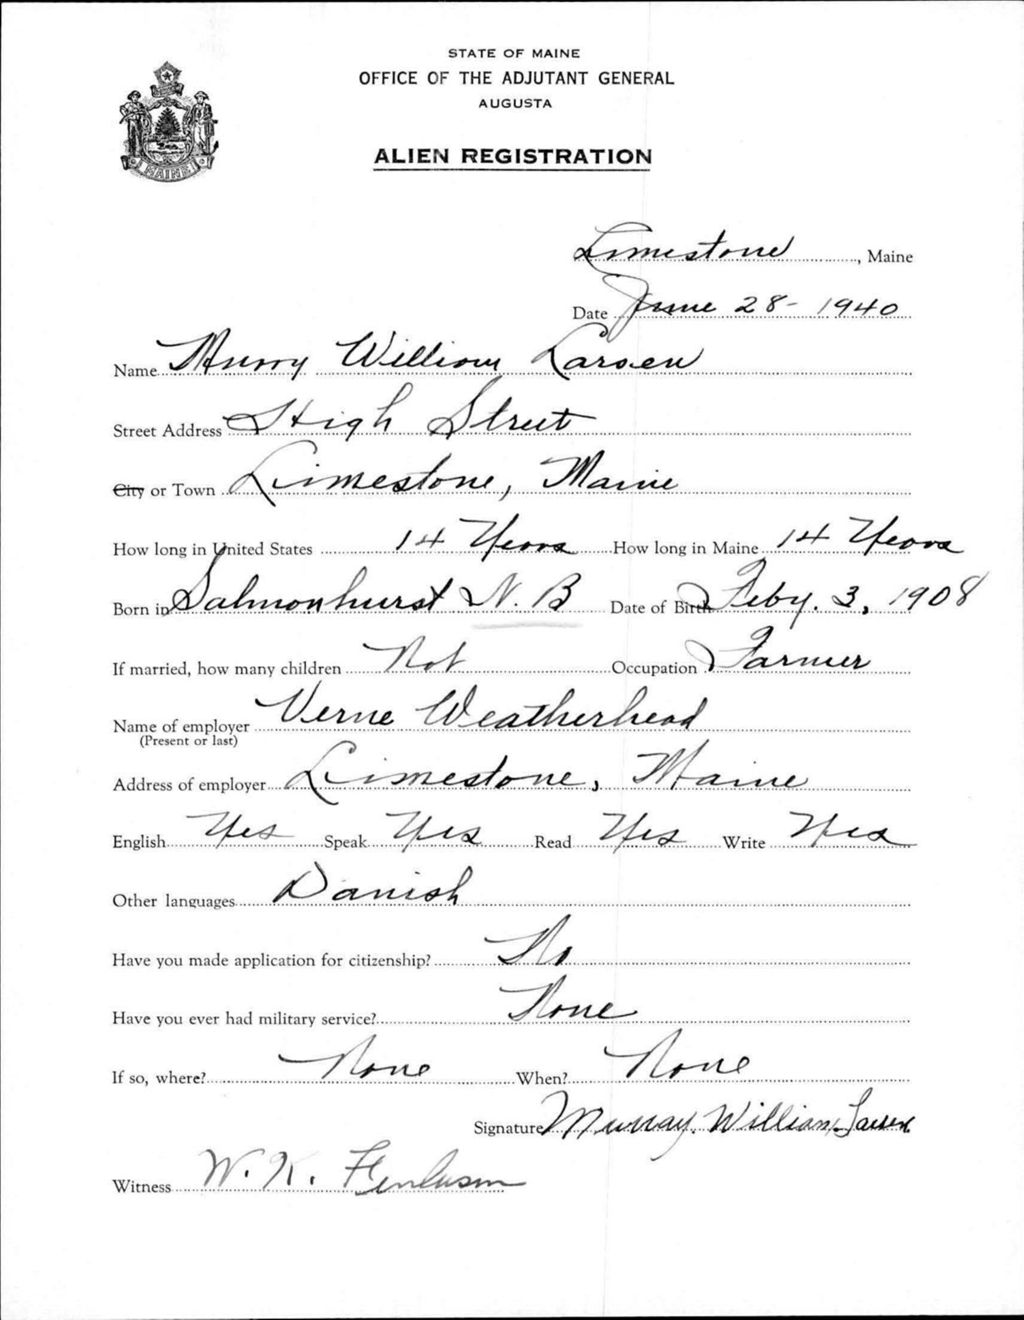 STATE OF MAINE
OFFICE OF THE ADJUTANT GENERAL
AUGUSTA
ALIEN REGISTRATION
MAINE
Limestone, Maine
Date June 28- 1940
Name Murry William Larsen
Street Address High Street
City or Town Limestone, Maine
How long in United States 14 Years How long in Maine 14 Years
Born in Salmonhurst N. B Date of Birth Feby. 3, 1908
If married, how many children Not Occupation Farmer
Name of employer Verne Weatherhead
(Present or last)
Address of employer Limestone, Maine
English Yes Speak Yes Read Yes Write Yes
Other languages Danish
Have you made application for citizenship? No
Have you ever had military service? None
If so, where? None When? None
Signature Murray William Larsen
Witness W. K.